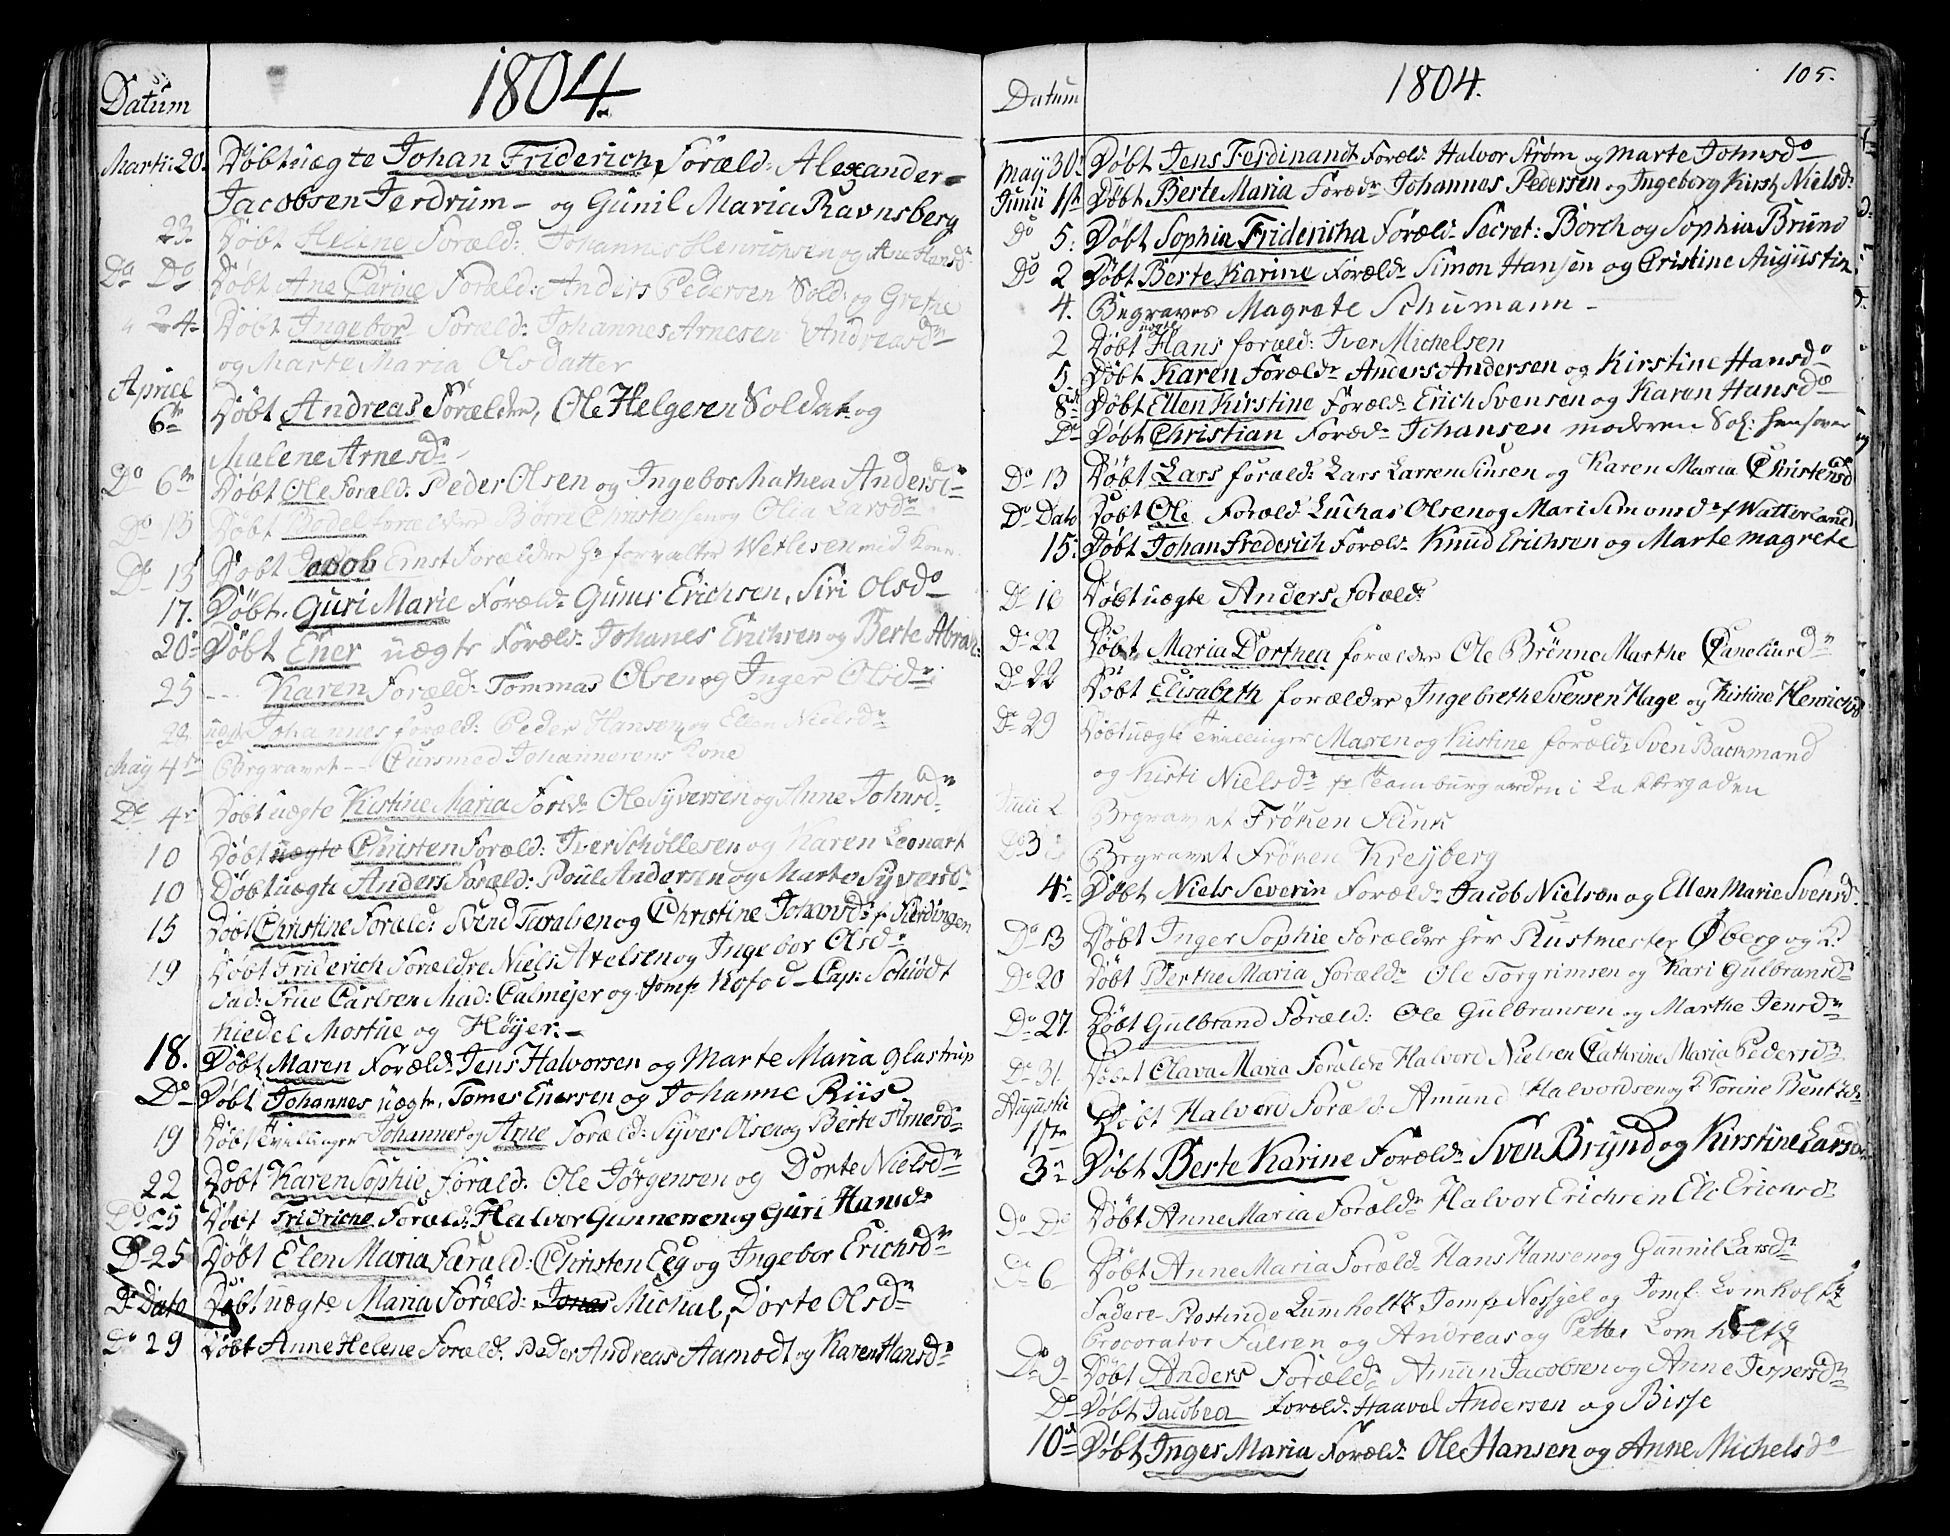 1804.
Datum
Martii 20. Døbt uægte Johan Friderich, Foræld: Alexander
Jacobsen Jerdrum - og Gunil Maria Ravnsberg
23. Døbt Helene Foræld: Johannes Henrichsen og Ane Hansd
Do Do Døbt Ane Carine Foræld: Anders Pedersen Sold: og Grethe
24 Døbt Ingebor Foræld: Johannes Arnesen Andreasd
og Marte Maria Olsdatter
Apriel
6te Døbt Andreas Forældre, Ole Helgesen Soldat og
Malene Arnesd
Do 6te Døbt Ole Foræld: Peder Olsen og Ingebor Mathea Andersd
Do 13 Døbt Bodel forældre Børre Christensen og Olia Larsd
Do 15 Døbt Jacob Ernst Forældre Hr forvalter Wetlesen med Kone
17. Døbt Guri Marie Foræld: Erichsen, Siri Olsd
20 Døbt Ener uægte Foræld: Johanes Erichsen og Berte Abrah:
25 -- Karen Foræld: Tommas Olsen og Inger Olsd
22 uægte Johannes foræld: Peder Hansen og Ellen Nielsd
May 4te Begravet -- Johannesens Kone
Do 4 Døbt uægte Kistine Maria Foræld: Ole Syversen og Anne Johnsd
10 Døbt uægte Christen Foræld: Iver Schøllesen og Karen Leonart
10 Døbt uægte Anders Foræld: Poul Andersen og Marte Syversd
15 Døbt Christine Foræld: Svend Taralsen og Christine Johansd: f
19 Døbt Friderich Forældre Niels Axelsen og Ingebor Olsd
Fad: Frue Carlsen Mad: Calmejer og Jomf: Kofod - Cap: Schiødt
Kiedel Mostue og Høyer. -
18. Døbt Maren Foræld: Jens Halvorsen og Marte Maria Glastrup
Do Døbt Johannes uægte, Tomes Enersen og Johanne Riis
19 Døbt Tvillinger Johannes og Arne Foræld: Syver Olsen og Berte Arnesd
22 Døbt Karen Sophie Foræld: Ole Jørgensen og Dorte Nielsd
Do 25 Døbt Fridriche Foræld: Halvor Gunnersen og Guri Hansd
Do 25 Døbt Elen Maria Foræld: Christen Eeg og Ingebor Erichsd
Do Dato Døbt uægte Maria Foræld: Jonas Michal, Dorte Olsd
Do 29 Døbt Anne Helene Foræld: Peder Andreas Aamodt og Karen Hansd
105.
1804.
Datum
May 30 Døbt Jens Ferdinandt Foræld: Halvor Strøm og Marte Johnsd
Junii 1st Døbt Berte Maria Foræd: Johannes Pedersen og Ingeborg Kirst Nielsd
Do 5. Døbt Sophia Fridericha Foræld: Secret: Borch og Sophia Bruno
Do 2 Døbt Berte Karine Foræld: Simon Hansen og Cristine Augustin
4. Begraves Magrete Schumann -
2 Døbt uægte Hans foræld: Iver Michelsen
5. Døbt Karen Foræld: Anders Andersen og Kirstine Hansd
8de Døbt Ellen Kirstine Foræld: Erich Svensen og Karen Hansd
Do Døbt Christian Foræd: Johansen moderen
Do 13 Døbt Lars foræld: Lars Larsen og Karen Maria Christensd
Do Dato Døbt Ole Foræld Luchas Olsen og Mari Simonsd: f Watterland
15. Døbt Johan Frederich Foræld: Knud Erichsen og Marte Magrete
Do 16 Døbt uægte Anders Foræld:
Do 22 Døbt Maria Dorthea forældre Ole Brønne Marthe
Do 22 Døbt Elisabeth forældre Ingebreth Svensen Hage og Kistine Henrichsd
Do 29 Døbt uægte Tvillinger Maren og Kistine foræld: Sven Backmand
og Kisti Nielsd fr Hamburgarden i Lakkergaden
Junii 2 Begravet Frøken Flink
Do 3 Begravet Frøken Kreyberg
4 Døbt Niels Severin Foræld: Jacob Nielsen og Ellen Marie Svensd
Do 13 Døbt Inger Sophie Forældre Her Rustmester Øberg og K:
Do 20 Døbt Berthe Maria foræld: Ole Torgrimsen og Kari Gulbransd
Do 27. Døbt Gulbrand Foræld: Ole Gulbransen og Marthe Jensd
Do 31. Døbt Olava Maria Forældre Halvord Nielsen Cathrine Maria Pedersd
Augusti
1ste Døbt Halvord Foræld: Amund Halvordsen og Torine Bentzd
3 Døbt Berte Karine Foræld: Sven Brynd og Kirstine Larsd
Do Do Døbt Anne Maria Foræld: Halvor Erichsen Ele Erichsd
Do 6 Døbt Anne Maria Foræld: Hans Hansen og Gunnil Larsd
Fadere Lumholtz Jomf Nossjel og Jomf: Lomholtz
Procorator Falsen og Andreas og Petter Lomholtz
Do 9 Døbt Anders Foræld: Amun Jacobsen og Anne Jespersd
Do Døbt Jacobea Foræld: Haavel Andersen og Bisse
10de Døbt Inger Maria Foræld: Ole Hansen og Anne Michelsd